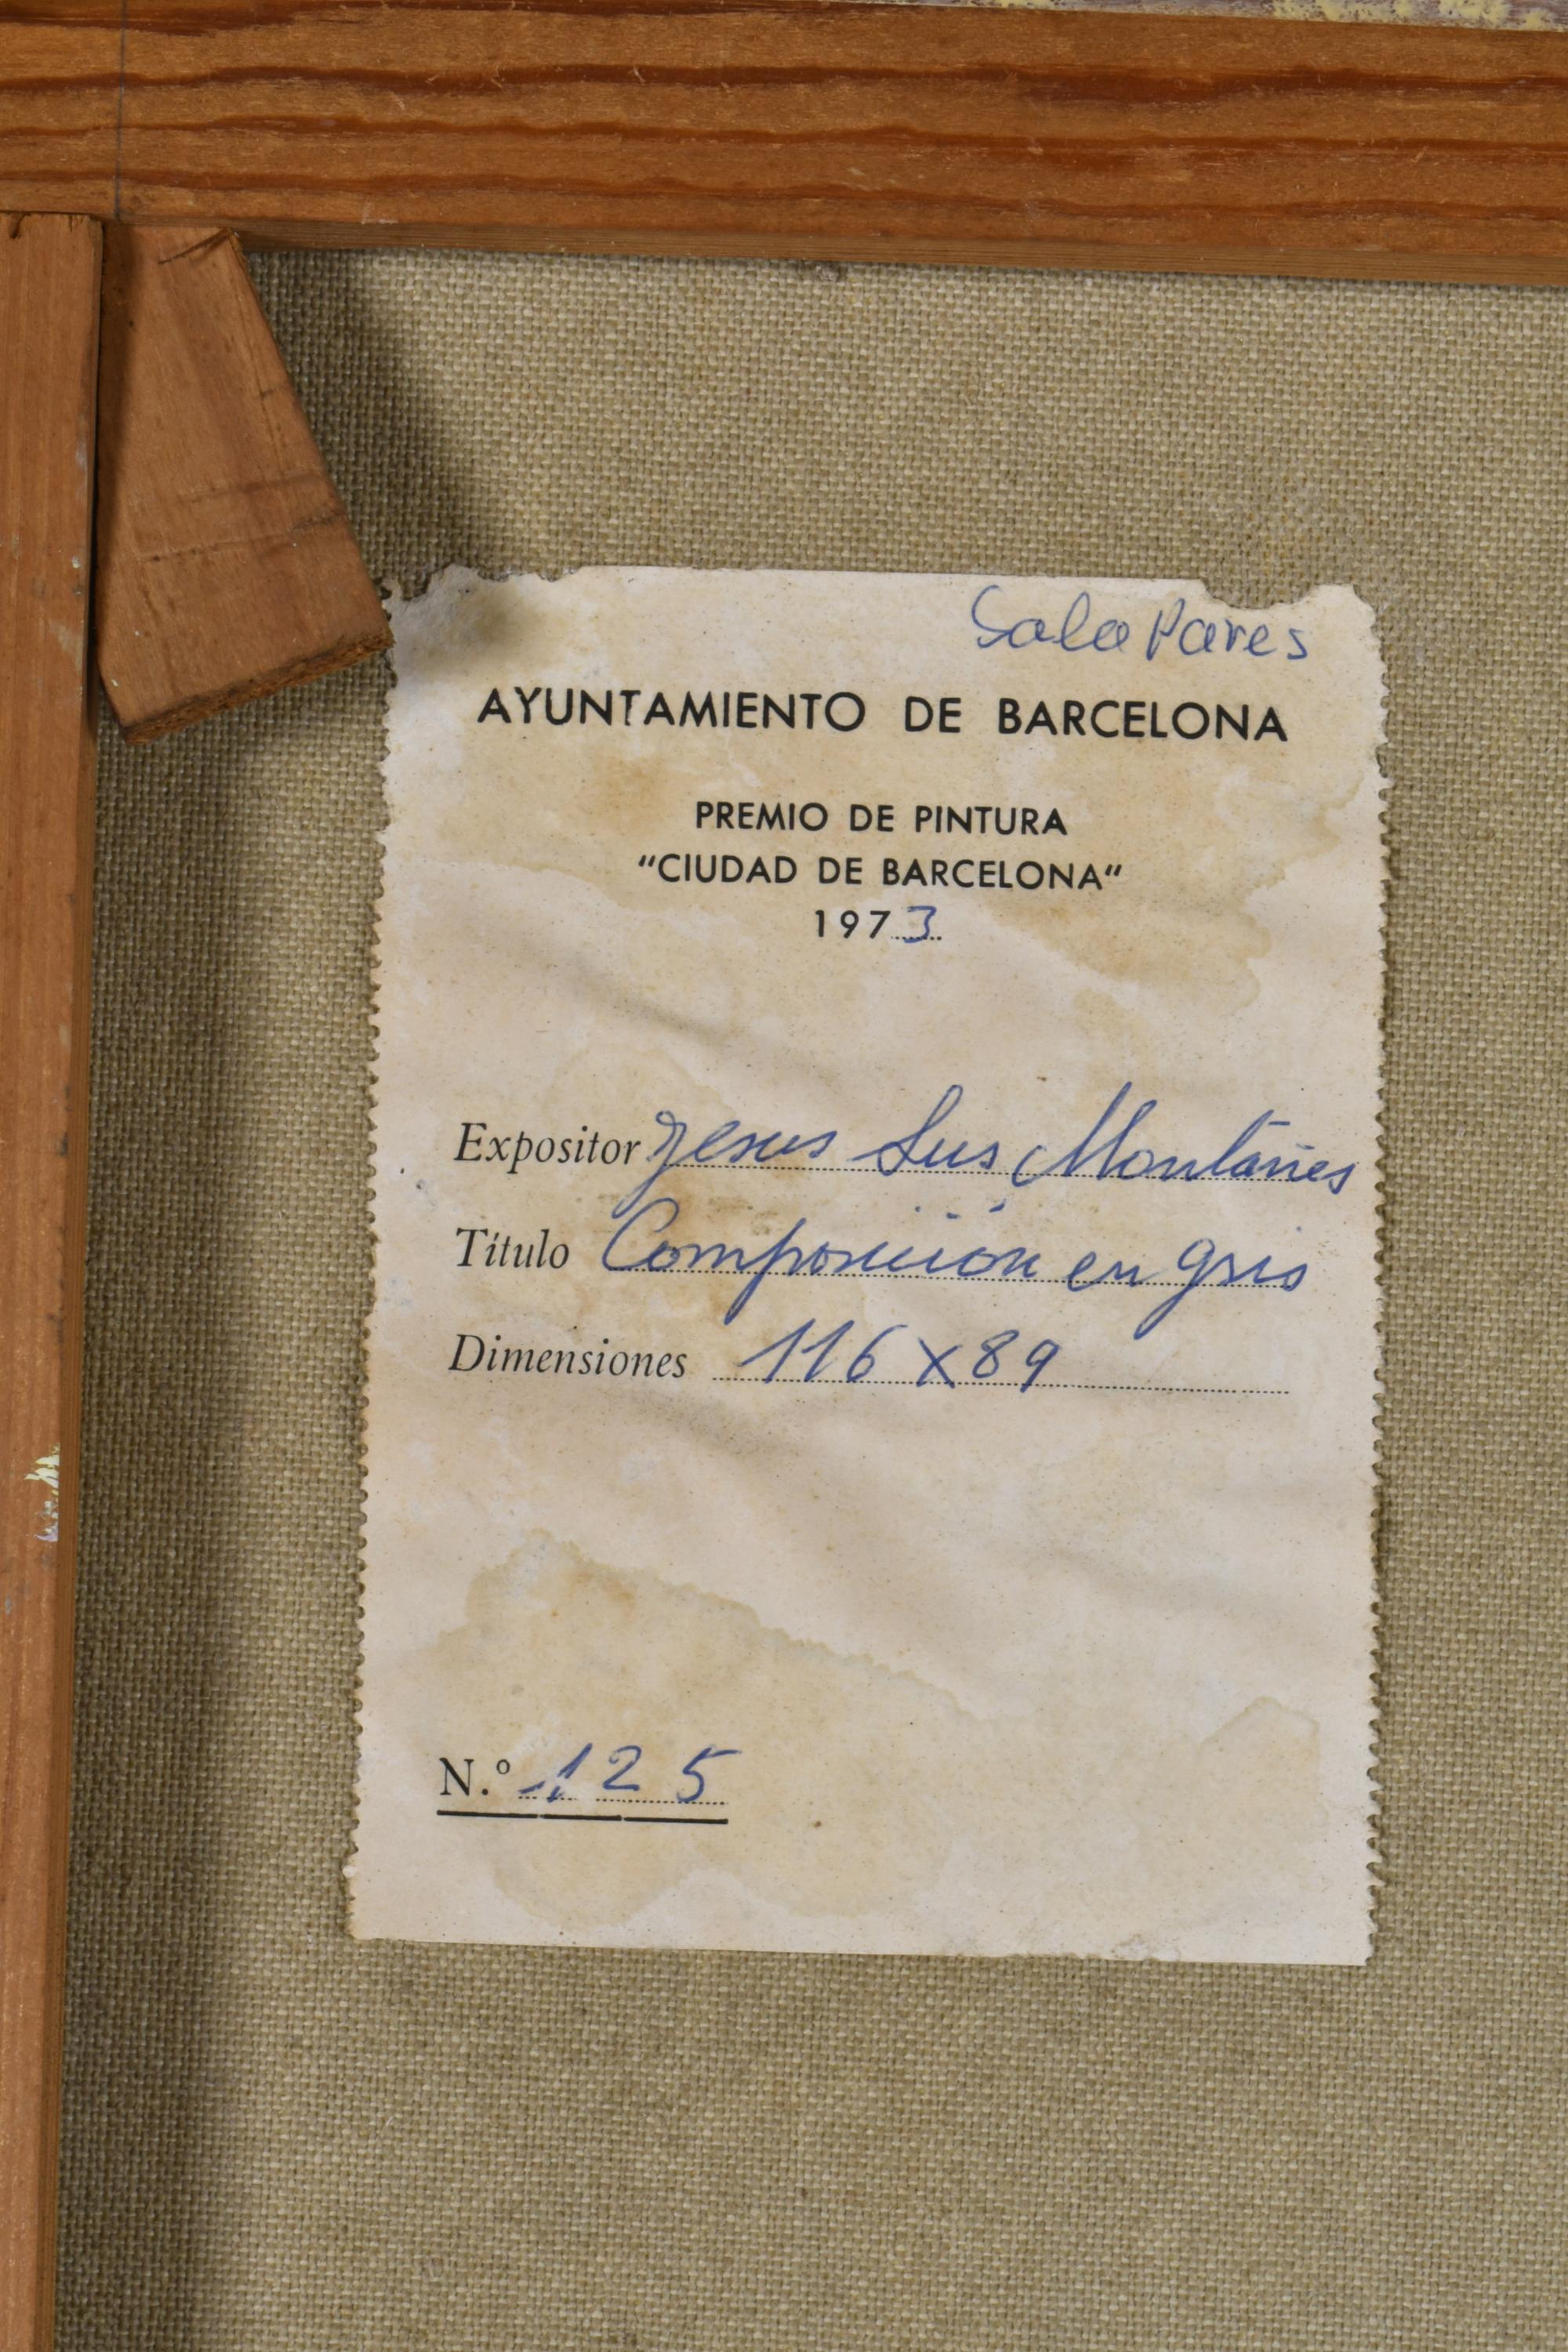 Sala Pares
AYUNTAMIENTO DE BARCELONA
PREMIO DE PINTURA
"CIUDAD DE BARCELONA"
1973
Expositor Jesus Lus Montañes
Título Composición en gris
Dimensiones 116 X 89
N.º 125